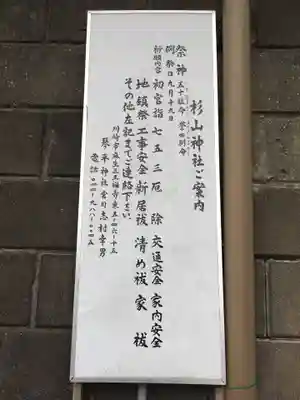 杉山神社ご案内
祭神 五十猛命 誉田別命
例祭日 九月十九日
祈願内容 初宮詣 七五三 厄除 交通安全 家内安全
地鎮祭 工事安全 新居祓 清め祓 家祓
その他左記までご連絡下さい
川崎市麻生区王禅寺東五-四六-十五
琴平神社宮司志村幸男
電話 〇四四-九八八-〇〇四五